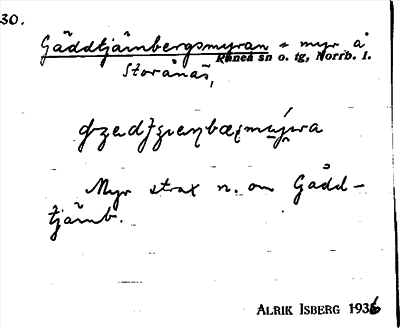 30.
Gäddtjämbergsmyran = myr å
Råneå sn o. tg, Norrb. l.
Storånäs,
Myr strax n. om Gädd-
tjämb.
ALRIK ISBERG 1936